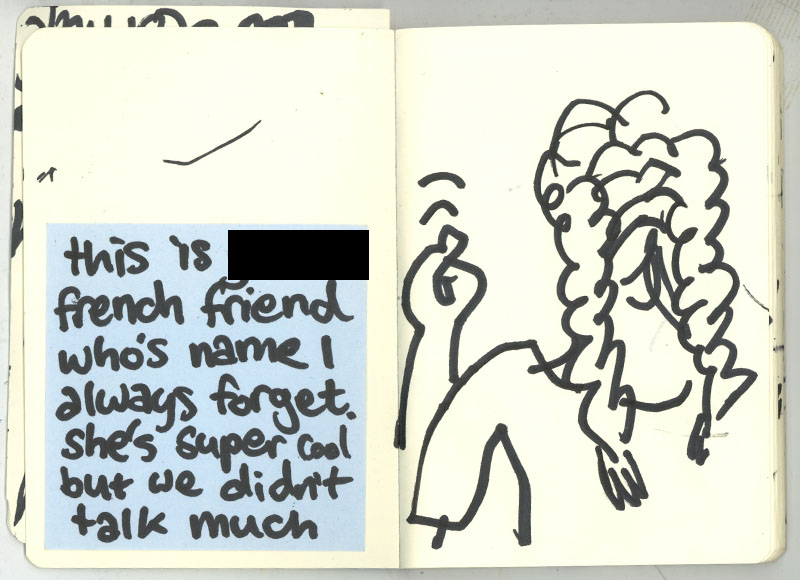 this is
french friend
who's name I
always forget.
she's super cool
but we didn't
talk much